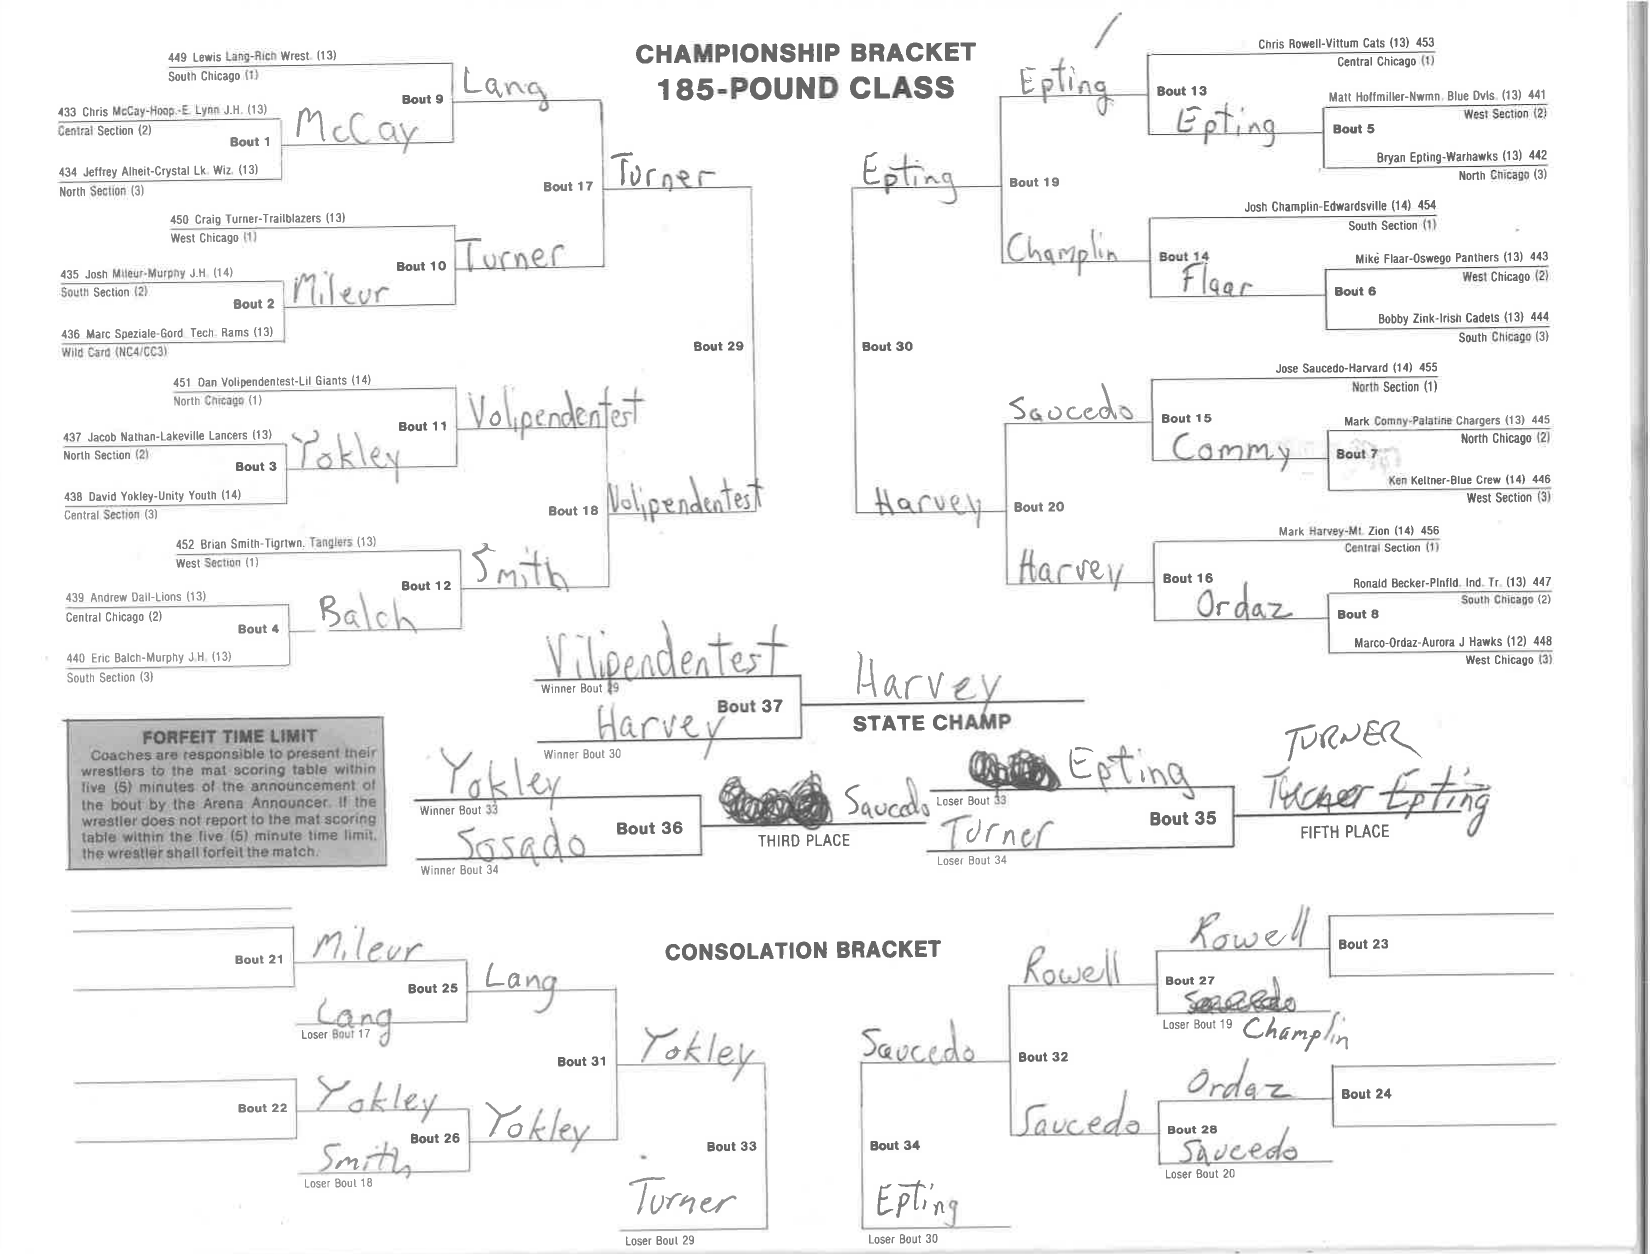 CHAMPIONSHIP BRACKET
185-POUND CLASS
449 Lewis Lang-Rich Wrest. (13)
South Chicago (1)
Bout 9
Lang
433 Chris McCay-Hoop.-E. Lynn J.H. (13)
Central Section (2)
Bout 1
McCay
434 Jeffrey Alheit-Crystal Lk. Wiz. (13)
North Section (3)
Bout 17
Turner
450 Craig Turner-Trailblazers (13)
West Chicago (1)
Bout 10
Turner
435 Josh Mileur-Murphy J.H. (14)
South Section (2)
Bout 2
Mileur
436 Marc Speziale-Gord. Tech. Rams (13)
Wild Card (NC4/CC3)
Bout 29
451 Dan Volipendentest-Lil Giants (14)
North Chicago (1)
Bout 11
Volipendentest
437 Jacob Nathan-Lakeville Lancers (13)
North Section (2)
Bout 3
Yokley
438 David Yokley-Unity Youth (14)
Central Section (3)
Bout 18
Volipendentest
452 Brian Smith-Tigrtwn. Tanglers (13)
West Section (1)
Bout 12
Smith
439 Andrew Dail-Lions (13)
Central Chicago (2)
Bout 4
Balch
440 Eric Balch-Murphy J.H. (13)
South Section (3)
Chris Rowell-Vittum Cats (13) 453
Central Chicago (1)
Epting
Bout 13
Matt Hoffmiller-Nwmn. Blue Dvls. (13) 441
West Section (2)
Epting
Bout 5
Bryan Epting-Warhawks (13) 442
North Chicago (3)
Epting
Bout 19
Josh Champlin-Edwardsville (14) 454
South Section (1)
Champlin
Bout 14
Mike Flaar-Oswego Panthers (13) 443
West Chicago (2)
Flaar
Bout 6
Bobby Zink-Irish Cadets (13) 444
South Chicago (3)
Bout 30
Jose Saucedo-Harvard (14) 455
North Section (1)
Saucedo
Bout 15
Mark Comny-Palatine Chargers (13) 445
North Chicago (2)
Commy
Bout 7
Ken Keltner-Blue Crew (14) 446
West Section (3)
Harvey
Bout 20
Mark Harvey-Mt. Zion (14) 456
Central Section (1)
Harvey
Bout 16
Ronald Becker-Plnfld. Ind. Tr. (13) 447
South Chicago (2)
Ordaz
Bout 8
Marco-Ordaz-Aurora J Hawks (12) 448
West Chicago (3)
Vilipendentest
Winner Bout 29
Bout 37
Harvey
Winner Bout 30
Harvey
STATE CHAMP
FORFEIT TIME LIMIT
Coaches are responsible to present their
wrestlers to the mat scoring table within
five (5) minutes of the announcement of
the bout by the Arena Announcer. If the
wrestler does not report to the mat scoring
table within the five (5) minute time limit,
the wrestler shall forfeit the match.
Yokley
Winner Bout 33
Bout 36
Sosado
Winner Bout 34
Saucedo
THIRD PLACE
Epting
Loser Bout 33
Bout 35
Turner
Loser Bout 34
TURNER
Turner Epting
FIFTH PLACE
CONSOLATION BRACKET
Bout 21
Mileur
Bout 25
Lang
Lang
Loser Bout 17
Bout 31
Yokley
Bout 22
Yokley
Bout 26
Yokley
Smith
Loser Bout 18
Bout 33
Turner
Loser Bout 29
Rowell
Bout 23
Rowell
Bout 27
Saucedo
Loser Bout 19 Champlin
Saucedo
Bout 32
Ordaz
Bout 24
Saucedo
Bout 28
Saucedo
Loser Bout 20
Bout 34
Epting
Loser Bout 30